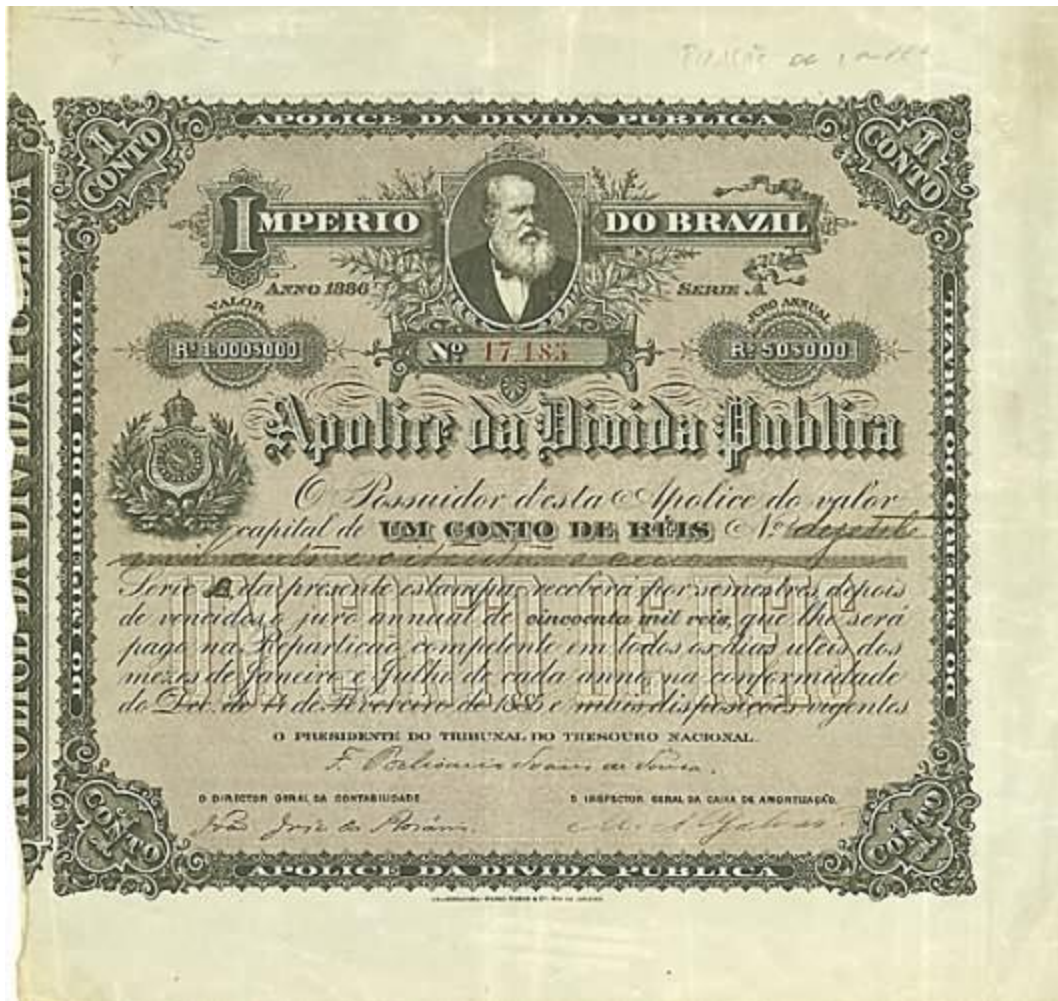 APOLICE DA DIVIDA PUBLICA
1 CONTO
1 CONTO
IMPERIO DO BRAZIL
ANNO 1886 SERIE A
VALOR
JURO ANNUAL
Rs 1.000$000
Nº 17.185
Rs 50$000
Apolice da Divida Publica
O Possuidor d'esta Apolice do valor
capital de UM CONTO DE RÉIS Nº
mil cento e oitenta e cinco
Serie A da presente estampa receberá por semestres depois
de vencidos o juro annual de cincoenta mil reis, que lhe será
pago na Repartição competente em todos os dias uteis dos
mezes de Janeiro e Julho de cada anno, na conformidade
do Dec. de de Fevereiro de e mais disposições vigentes
UM CONTO DE REIS
O PRESIDENTE DO TRIBUNAL DO THESOURO NACIONAL.
F. Belisario Soares de Souza.
O DIRECTOR GERAL DA CONTABILIDADE
O INSPECTOR GERAL DA CAIXA DE AMORTIZAÇÃO.
João José do
1 CONTO
1 CONTO
APOLICE DA DIVIDA PUBLICA
DO IMPERIO DO BRAZIL
DO IMPERIO DO BRAZIL
APOLICE DA DIVIDA PUBLICA